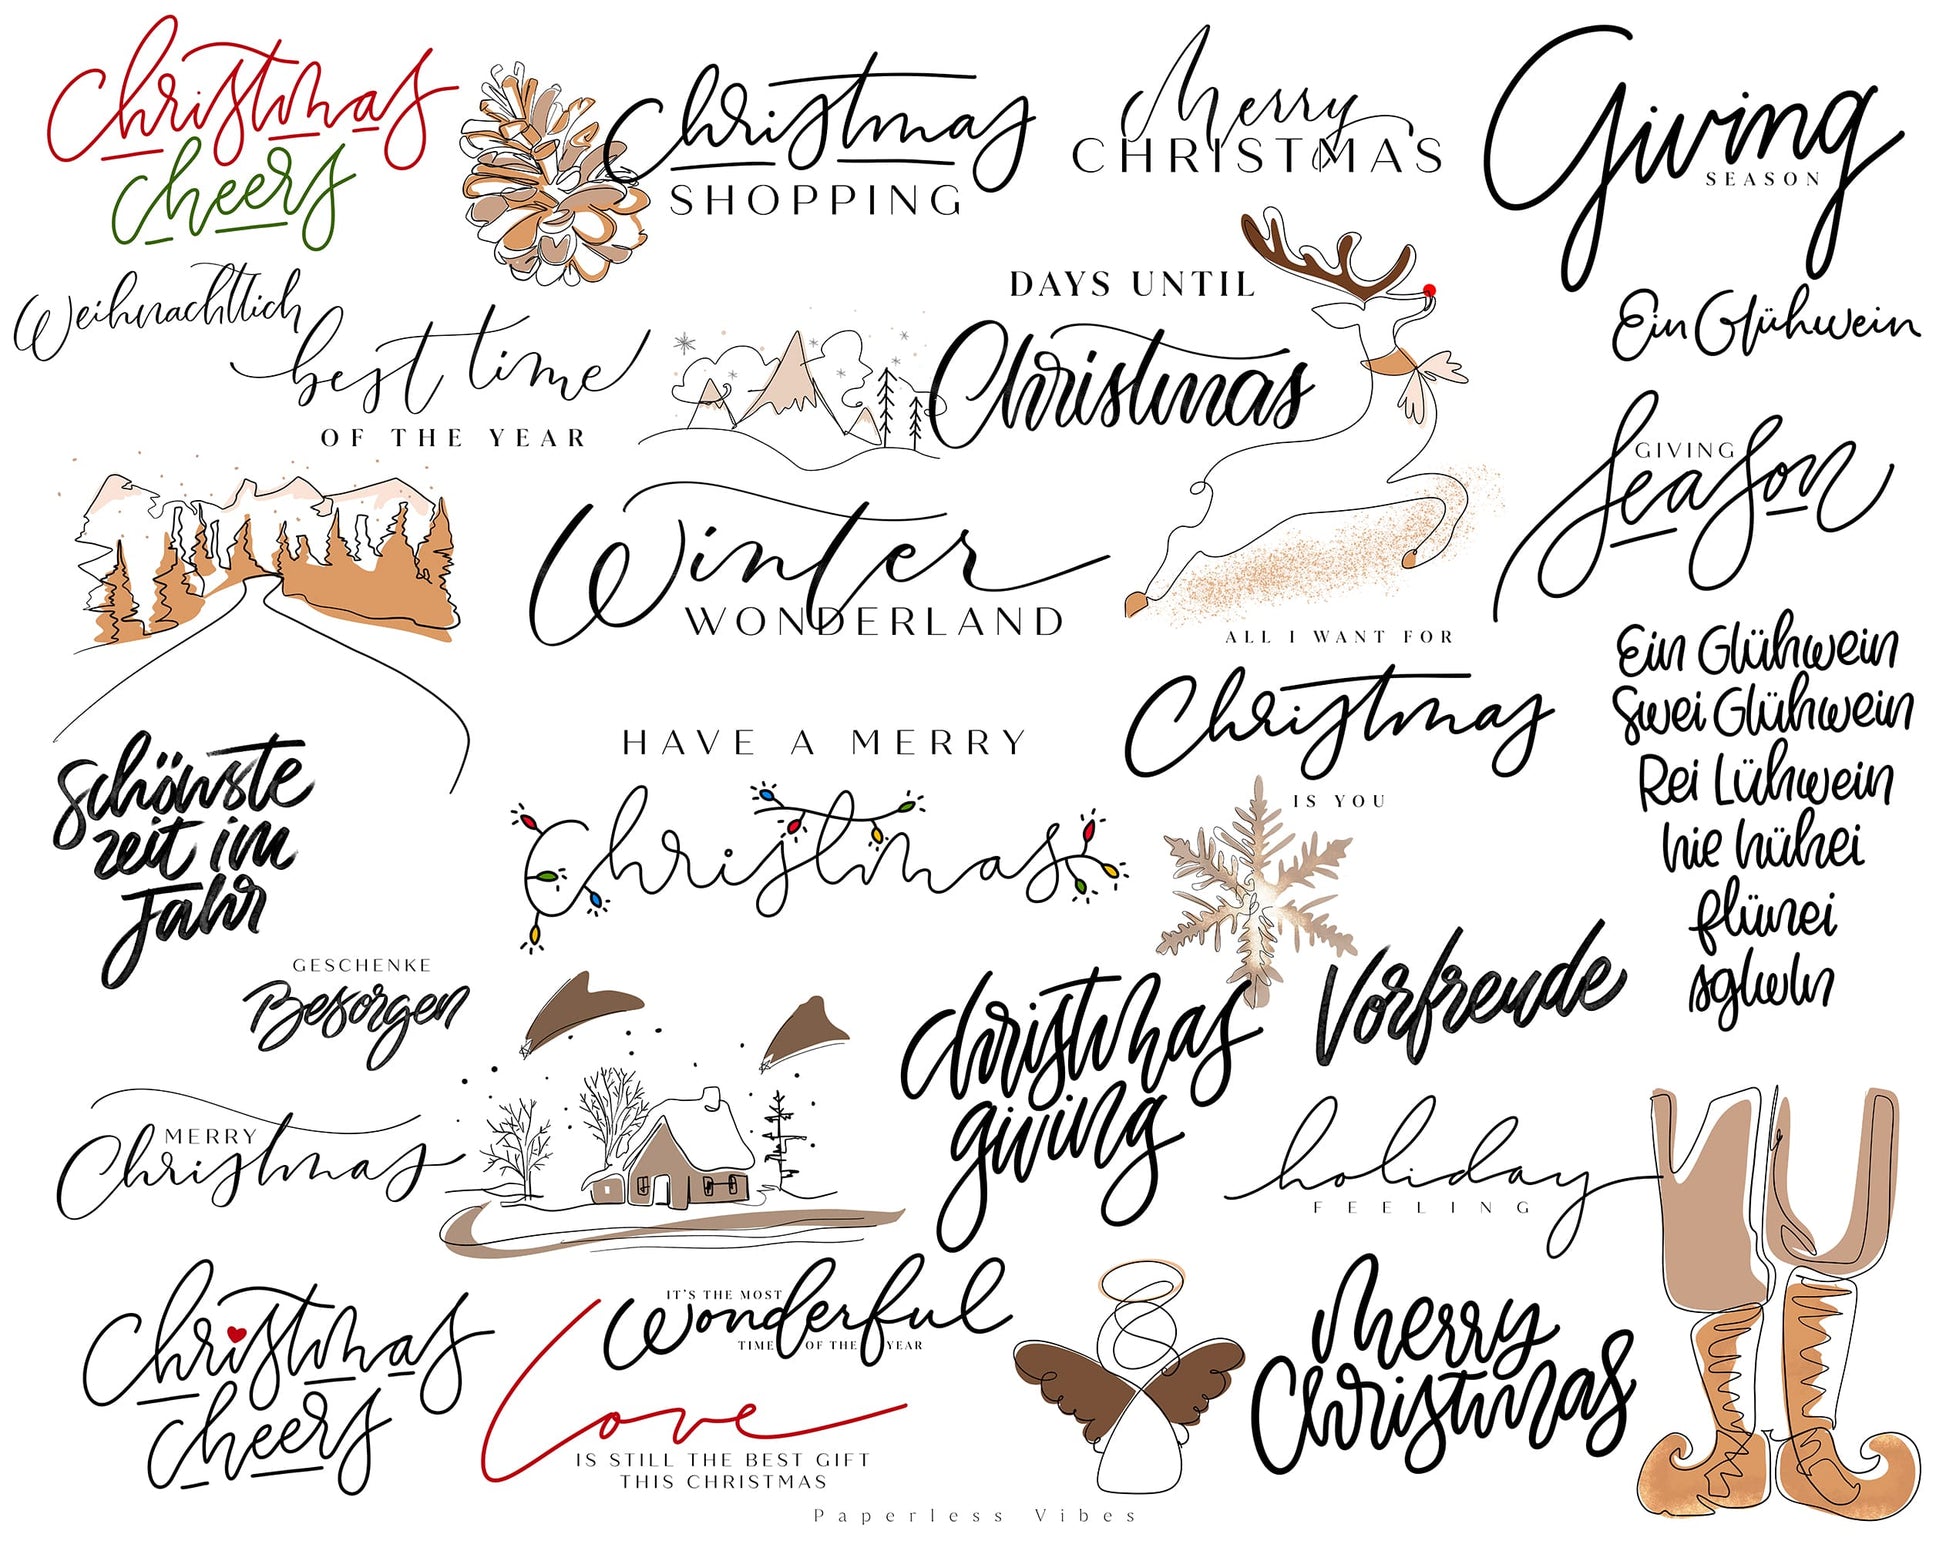 Christmas
cheers
Christmas
SHOPPING
Merry
CHRISTMAS
Giving
SEASON
Weihnachtlich
best time
OF THE YEAR
DAYS UNTIL
Christmas
Ein Glühwein
GIVING
Season
Winter
WONDERLAND
ALL I WANT FOR
Christmas
IS YOU
Ein Glühwein
Swei Glühwein
Rei Lühwein
hie hühei
flünei
sglwln
Schönste
zeit im
Jahr
HAVE A MERRY
Christmas
GESCHENKE
Besorgen
Christmas
giving
Vorfreude
MERRY
Christmas
holiday
FEELING
Christmas
cheers
IT'S THE MOST
Wonderful
TIME OF THE YEAR
Love
IS STILL THE BEST GIFT
THIS CHRISTMAS
Merry
Christmas
Paperless Vibes